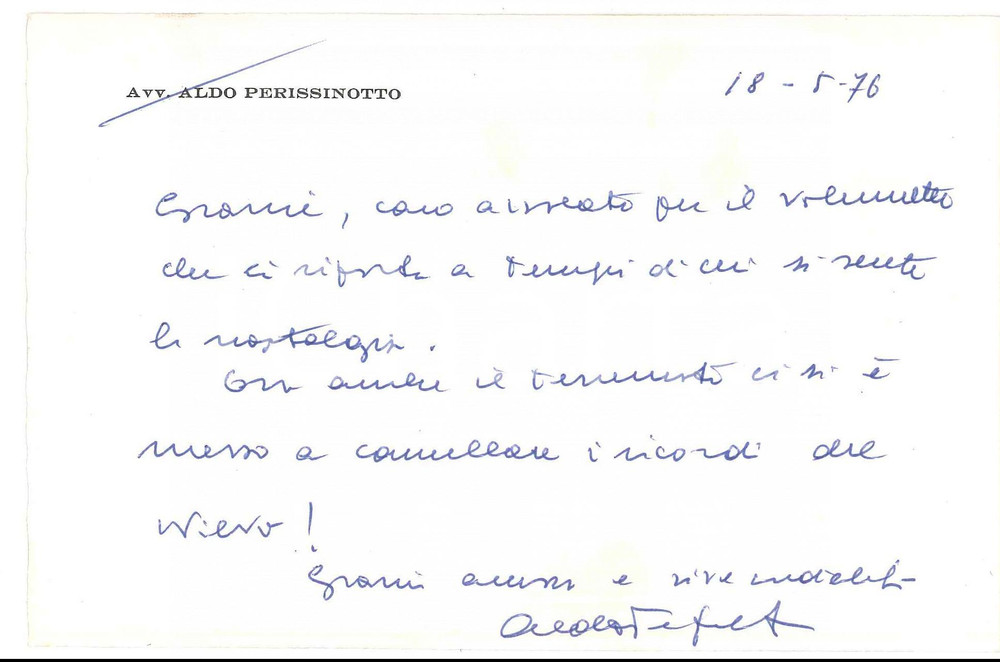 Avv. ALDO PERISSINOTTO
18 - 5 - 76
Grazie, caro avvocato per il volumetto
che ci riporta a tempi di cui si sente
la nostalgia.
Ora anche il terremoto ci si è
messo a cancellare i ricordi del
Nievo!
Grazie ancora e
Aldo